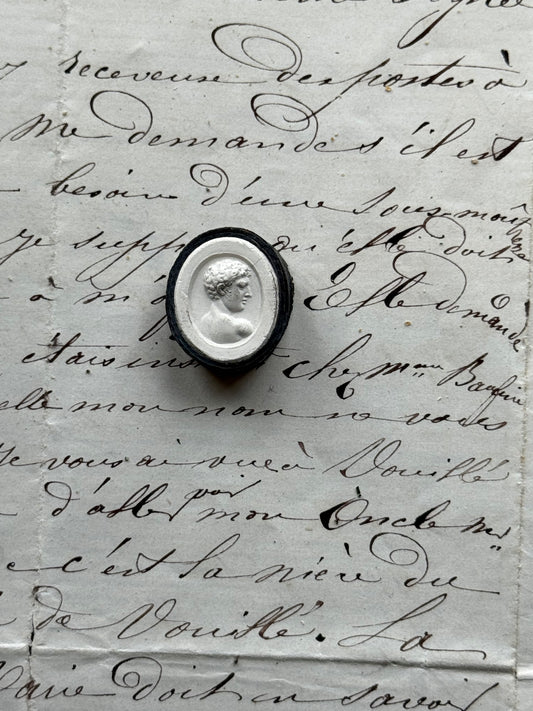 receveuse des postes à
me demande s'il est
besoin d'une sous-maît
je supp qu'elle doit
à m' Elle demande
étais ins chez mme
elle mon nom ne vous
je vous ai vue à Vouillé
d'aller voir mon Oncle mr
c'est la nièce du
de Vouillé. La
doit en savoir